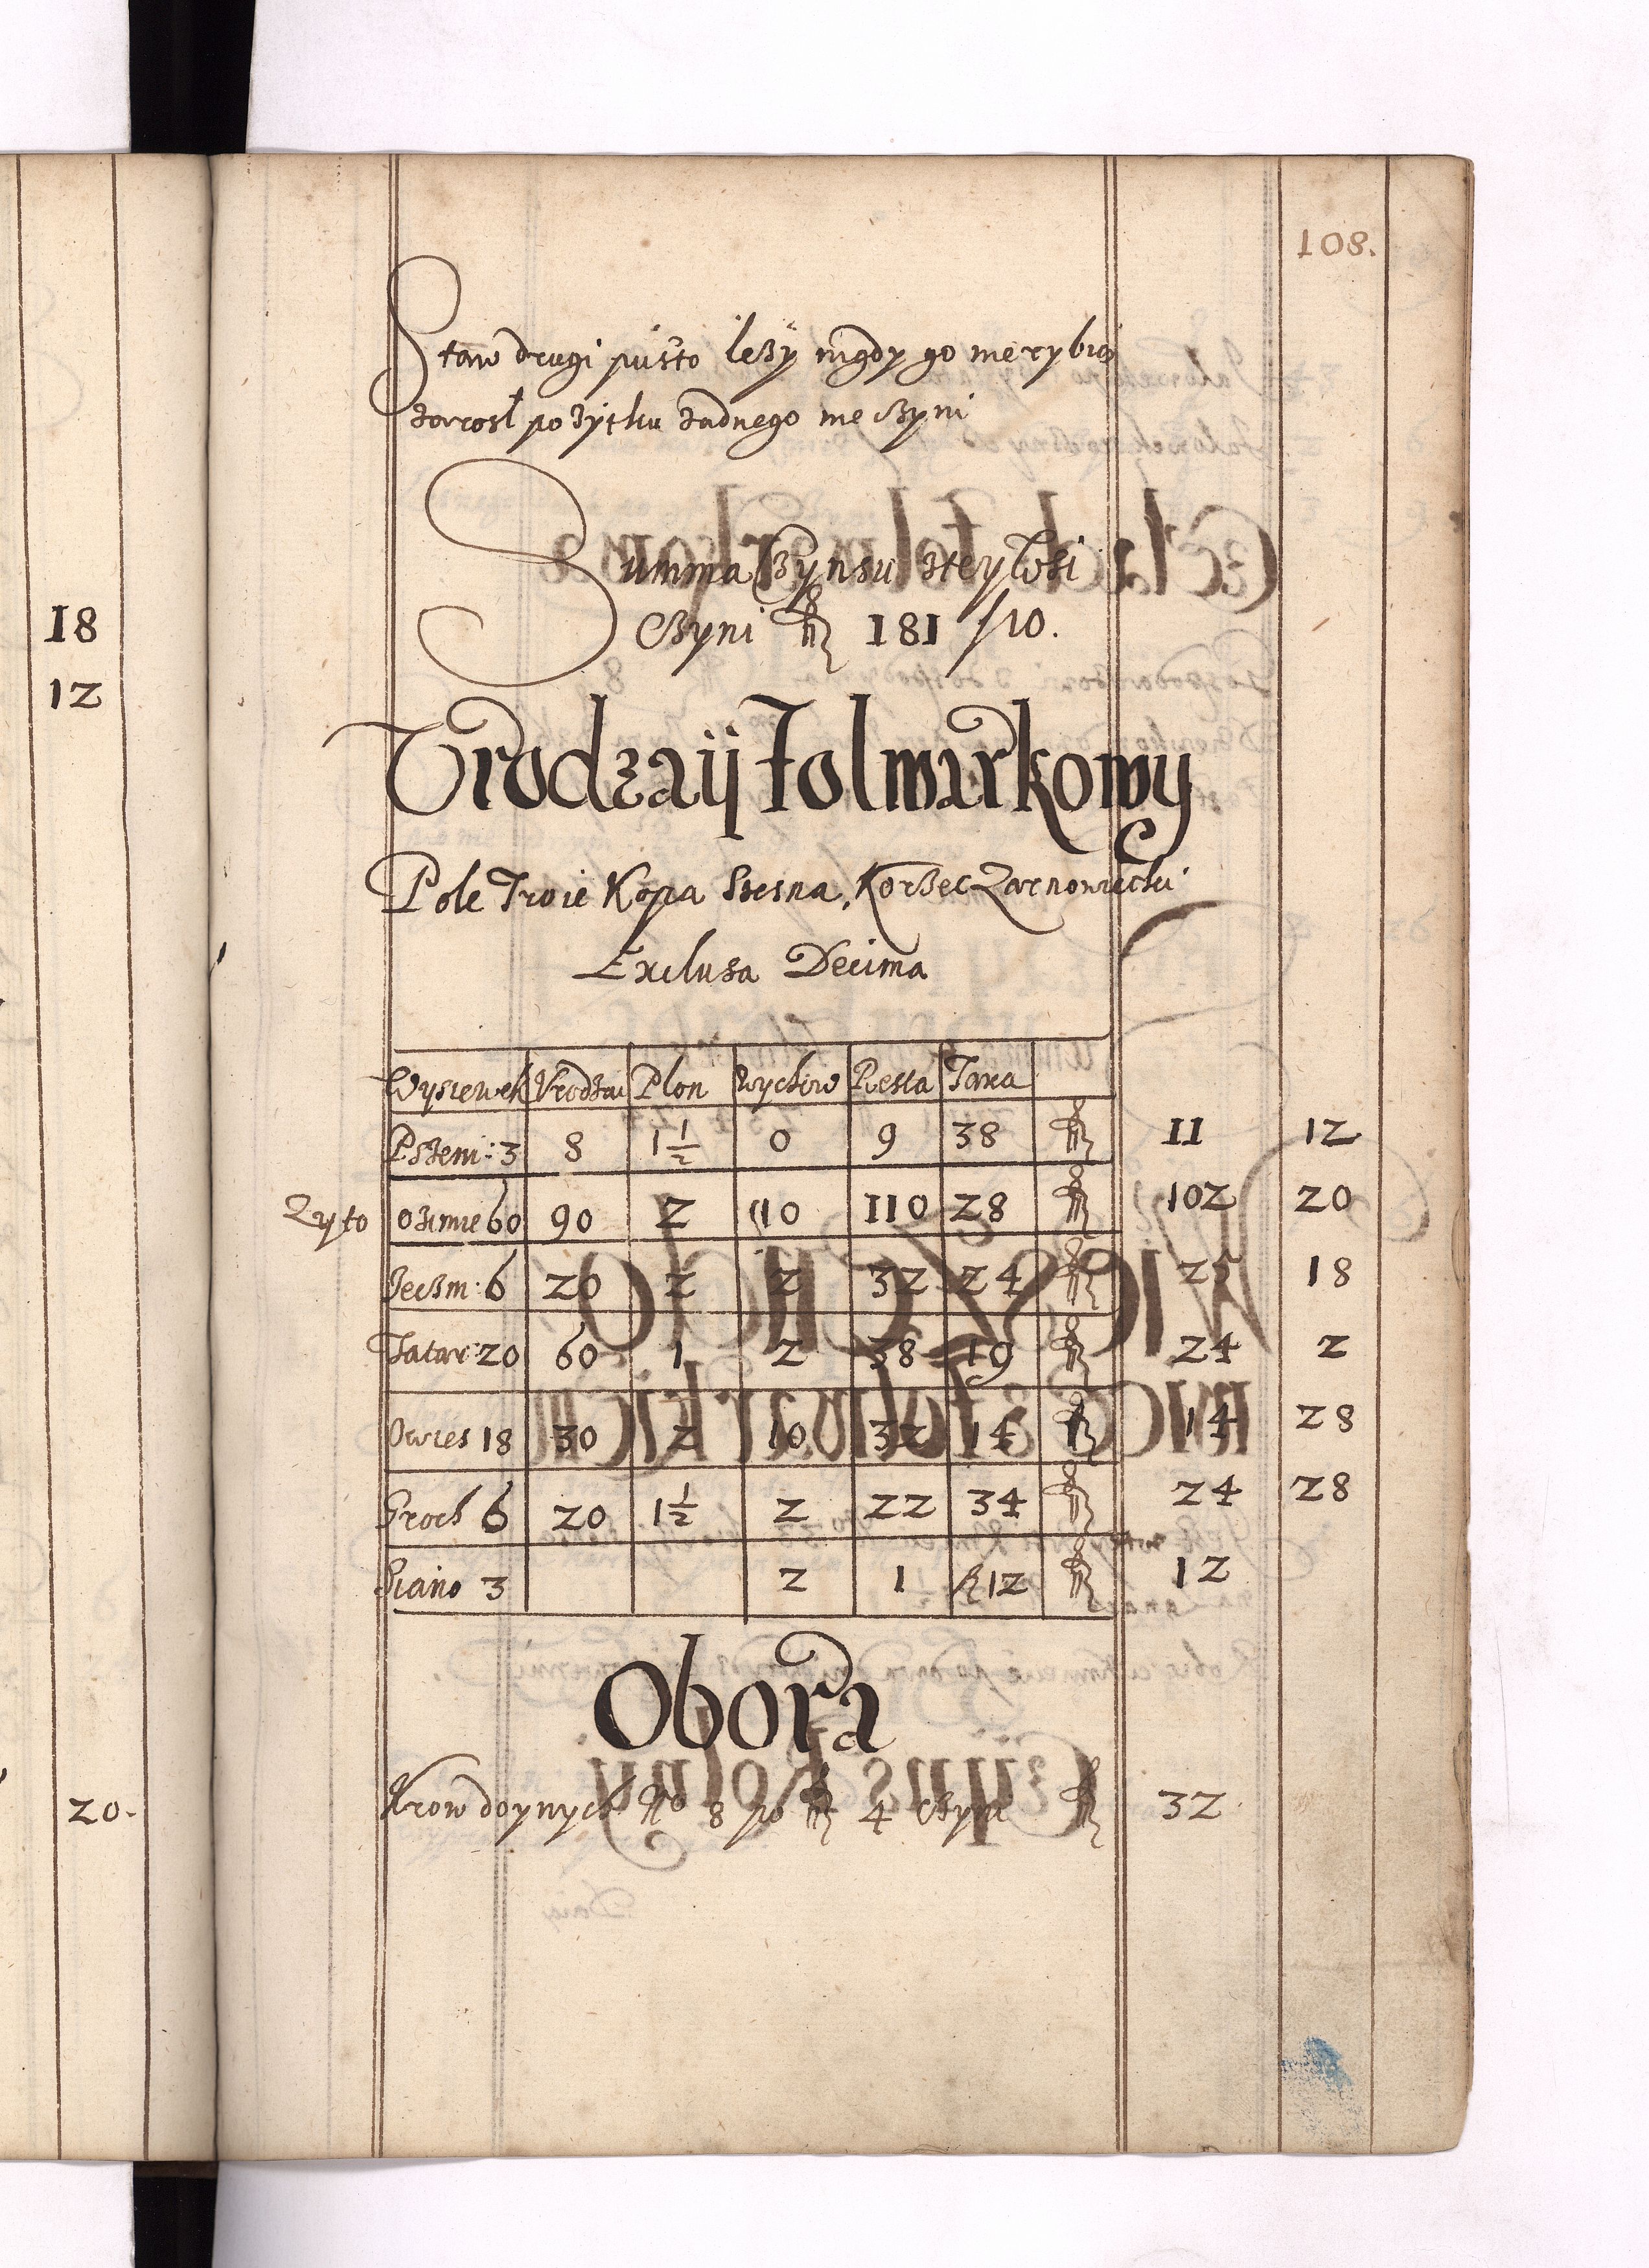 108.
Staw drugi pusto leży nigdy go nie rybio
zarosł pożytku żadnego nie czyni
Summa Czynsu z tey Wsi
Czyni fl 181 /10.
Vrodzaij Folwarkowy
Pole Troie Kopa Szesna, Korzec Zarnowiecki
Exclusa Decima
Wysiewek Vrodzai Plon Wychow Resta Taxa
Pszeni: 3 8 1 1/2 0 9 38 fl 11 12
Zyto ozimie 60 90 2 10 110 28 fl 102 20
Jeczm: 6 20 2 2 32 24 fl 25 18
Tatar: 20 60 1 2 38 19 fl 24 2
Owies 18 30 2 10 32 14 fl 14 28
Groch 6 20 1 1/2 2 22 34 fl 24 28
Siano 3 2 1 fl 12 fl 12
Obora
Krow doynych No 8 po fl 4 czyni fl 32
18
12
20.